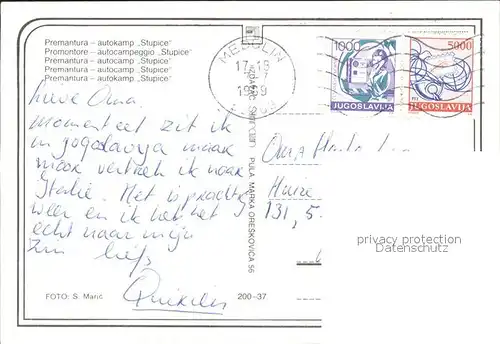 Premantura – autokamp „Stupice"
Promontore – autocampeggio „Stupice"
Premantura – autokamp „Stupice"
Premantura – autokamp „Stupice"
Premantura – autokamp „Stupice"
MEDULIN
17-19
1000
JUGOSLAVIJA
5000
JUGOSLAVIJA
Lieve Oma
momenteel zit ik
in jogoslavya maar
morr vertrek ik naar
Italië. Het is prachtig
weer en ik heb het
echt naar mijn
zin liefs
PULA, MARKA OREŠKOVIĆA 56
Oma
Huize
131, 5-
privacy protection
Datenschutz
FOTO: S. Marić
200–37